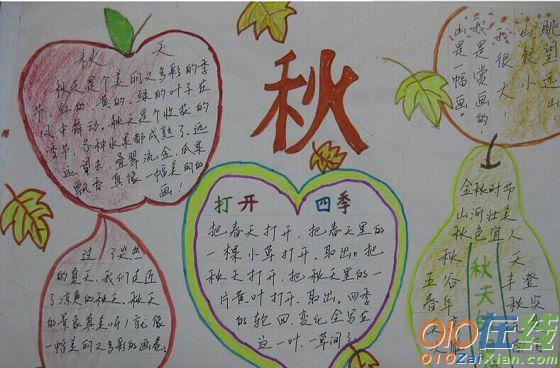 秋天
秋天是个美丽又多彩的季
节，红的、黄的、绿的叶子在
风中舞动。秋天是个收获的
季节，各种水果都成熟了。远
远望去，叠翠流金，瓜果
飘香，真像一幅美丽的
画！
秋
眺望远山，
山貌小，
我很大，
我是赏画的，
山是一幅画。
过了炎热
的夏天，我们走近
了凉爽的秋天，秋天
的景象真美呀！就像
一幅美丽又多彩的画卷。
打开 四季
把春天打开，把春天里的
一棵小草打开、取出。把
秋天打开，把秋天里的一
片黄叶打开、取出。四季
的轮回、变化全写在
这一叶、一草间了。
金秋时节
山河壮美
秋色宜人
秋天
秋
五谷
春华
天
丰登
秋实
010在线
010ZaiXian.com